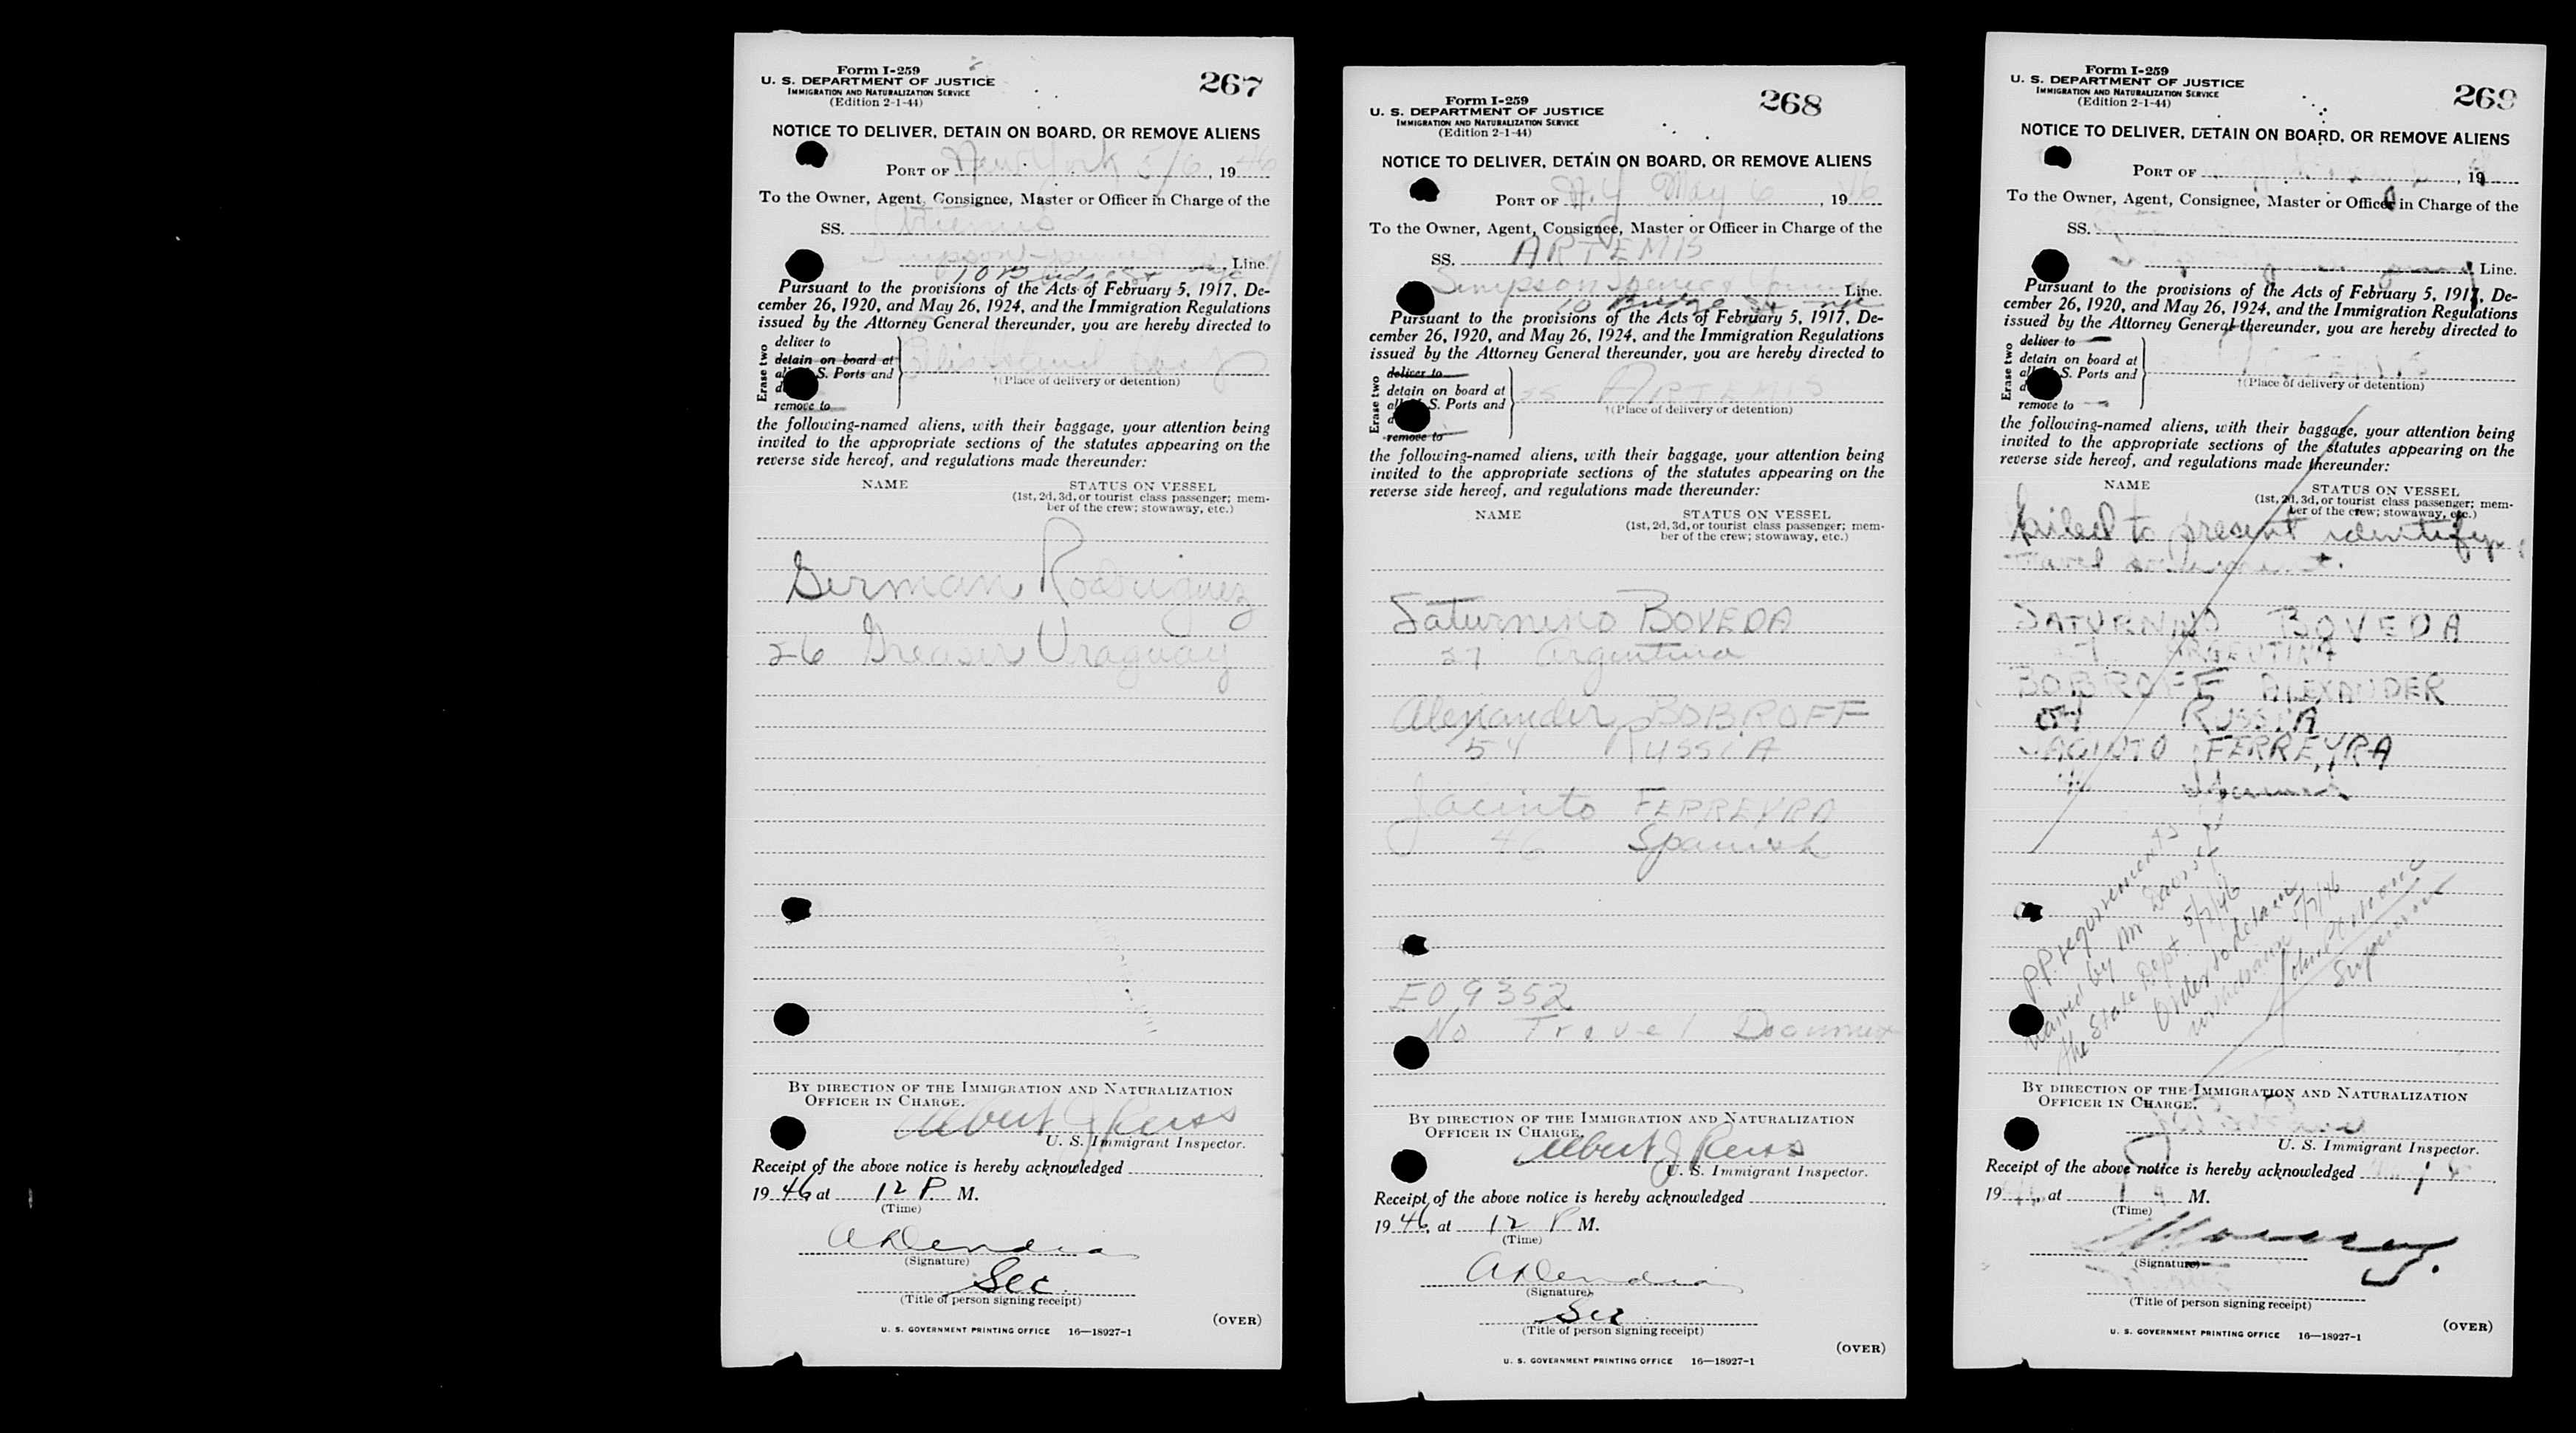 Form I-259
U. S. DEPARTMENT OF JUSTICE
IMMIGRATION AND NATURALIZATION SERVICE
(Edition 2-1-44)
267
NOTICE TO DELIVER, DETAIN ON BOARD, OR REMOVE ALIENS
PORT OF New York 5/6, 1946
To the Owner, Agent, Consignee, Master or Officer in Charge of the
SS. Artemis
Simpson Spence Line.
10 Bridge St nyc
Pursuant to the provisions of the Acts of February 5, 1917, De-
cember 26, 1920, and May 26, 1924, and the Immigration Regulations
issued by the Attorney General thereunder, you are hereby directed to
Erase two
deliver to
detain on board at
S. Ports and
remove to
Ellis Island
†(Place of delivery or detention)
the following-named aliens, with their baggage, your attention being
invited to the appropriate sections of the statutes appearing on the
reverse side hereof, and regulations made thereunder:
NAME
STATUS ON VESSEL
(1st, 2d, 3d, or tourist class passenger; mem-
ber of the crew; stowaway, etc.)
German Rodriguez
26 Greaser Uraguay
BY DIRECTION OF THE IMMIGRATION AND NATURALIZATION
OFFICER IN CHARGE.
Albert J Reiss
U. S. Immigrant Inspector.
Receipt of the above notice is hereby acknowledged
1946 at 12 P. M.
(Time)
(Signature)
Sec
(Title of person signing receipt)
(OVER)
U. S. GOVERNMENT PRINTING OFFICE 16—18927-1
Form I-259
U. S. DEPARTMENT OF JUSTICE
IMMIGRATION AND NATURALIZATION SERVICE
(Edition 2-1-44)
268
NOTICE TO DELIVER, DETAIN ON BOARD, OR REMOVE ALIENS
PORT OF N.Y May 6, 1946
To the Owner, Agent, Consignee, Master or Officer in Charge of the
SS. ARTEMIS
Simpson Spence & Young Line.
10 Bridge St nyc
Pursuant to the provisions of the Acts of February 5, 1917, De-
cember 26, 1920, and May 26, 1924, and the Immigration Regulations
issued by the Attorney General thereunder, you are hereby directed to
Erase two
deliver to
detain on board at
S. Ports and
remove to
SS ARTEMIS
†(Place of delivery or detention)
the following-named aliens, with their baggage, your attention being
invited to the appropriate sections of the statutes appearing on the
reverse side hereof, and regulations made thereunder:
NAME
STATUS ON VESSEL
(1st, 2d, 3d, or tourist class passenger; mem-
ber of the crew; stowaway, etc.)
Saturnino BOVEDA
27 Argentina
Alexander BOBROFF
54 RUSSIA
Jacinto FERREYRA
46 Spanish
EO 9352
No Travel Document
BY DIRECTION OF THE IMMIGRATION AND NATURALIZATION
OFFICER IN CHARGE.
Albert J Reiss
U. S. Immigrant Inspector.
Receipt of the above notice is hereby acknowledged
1946, at 12 P M.
(Time)
(Signature)
Sec
(Title of person signing receipt)
(OVER)
U. S. GOVERNMENT PRINTING OFFICE 16—18927-1
Form I-259
U. S. DEPARTMENT OF JUSTICE
IMMIGRATION AND NATURALIZATION SERVICE
(Edition 2-1-44)
269
NOTICE TO DELIVER, DETAIN ON BOARD, OR REMOVE ALIENS
PORT OF , 19
To the Owner, Agent, Consignee, Master or Officer in Charge of the
SS.
Line.
Pursuant to the provisions of the Acts of February 5, 1917, De-
cember 26, 1920, and May 26, 1924, and the Immigration Regulations
issued by the Attorney General thereunder, you are hereby directed to
Erase two
deliver to
detain on board at
S. Ports and
remove to
†(Place of delivery or detention)
the following-named aliens, with their baggage, your attention being
invited to the appropriate sections of the statutes appearing on the
reverse side hereof, and regulations made thereunder:
NAME
STATUS ON VESSEL
(1st, 2d, 3d, or tourist class passenger; mem-
ber of the crew; stowaway, etc.)
failed to present identifying
travel document.
SATURNINO BOVEDA
27 ARGENTINA
BOBROFF ALEXANDER
54 RUSSIA
JACINTO FERREYRA
P.P. requirements
waived by Mr
the State Dept. 5/7/46
Order to detain
withdrawn 5/7/46
Supervisor
BY DIRECTION OF THE IMMIGRATION AND NATURALIZATION
OFFICER IN CHARGE.
U. S. Immigrant Inspector.
Receipt of the above notice is hereby acknowledged
19 , at M.
(Time)
(Signature)
(Title of person signing receipt)
(OVER)
U. S. GOVERNMENT PRINTING OFFICE 16—18927-1